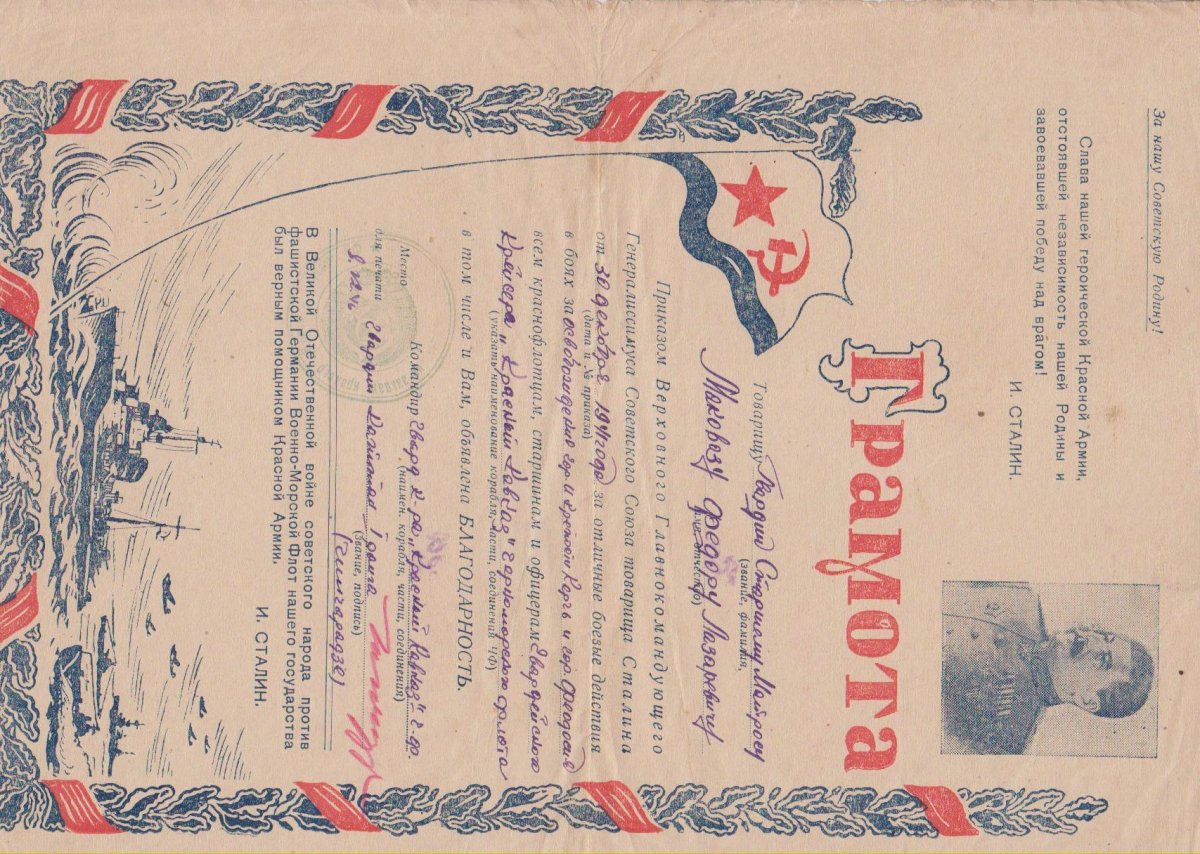 За нашу Советскую Родину!
Слава нашей героической Красной Армии,
отстоявшей независимость нашей Родины и
завоевавшей победу над врагом!
И. СТАЛИН.
Грамота
Товарищу Гвардии Старшему Матросу
(звание, фамилия,
Маковозу Федору Лазаревичу
имя, отчество)
Приказом Верховного Главнокомандующего
Генералиссимуса Советского Союза товарища Сталина
от 30 декабря 1941 года за отличные боевые действия
(дата и № приказа)
в боях за освобождение гор. и крепости Керчь и гор. Феодосия
всем краснофлотцам, старшинам и офицерам Гвардейского
(указать наименование корабля, части, соединения ЧФ)
Крейсера „Красный Кавказ" Черноморского флота
в том числе и Вам, объявлена БЛАГОДАРНОСТЬ.
Место
для печати
Командир Гвард. к-ра „Красный Кавказ" ЧФ
(наимен. корабля, части, соединения)
Гвардии Капитан I ранга
(звание, подпись)
В Великой Отечественной войне советского народа против
фашистской Германии Военно-Морской Флот нашего государства
был верным помощником Красной Армии.
И. СТАЛИН.